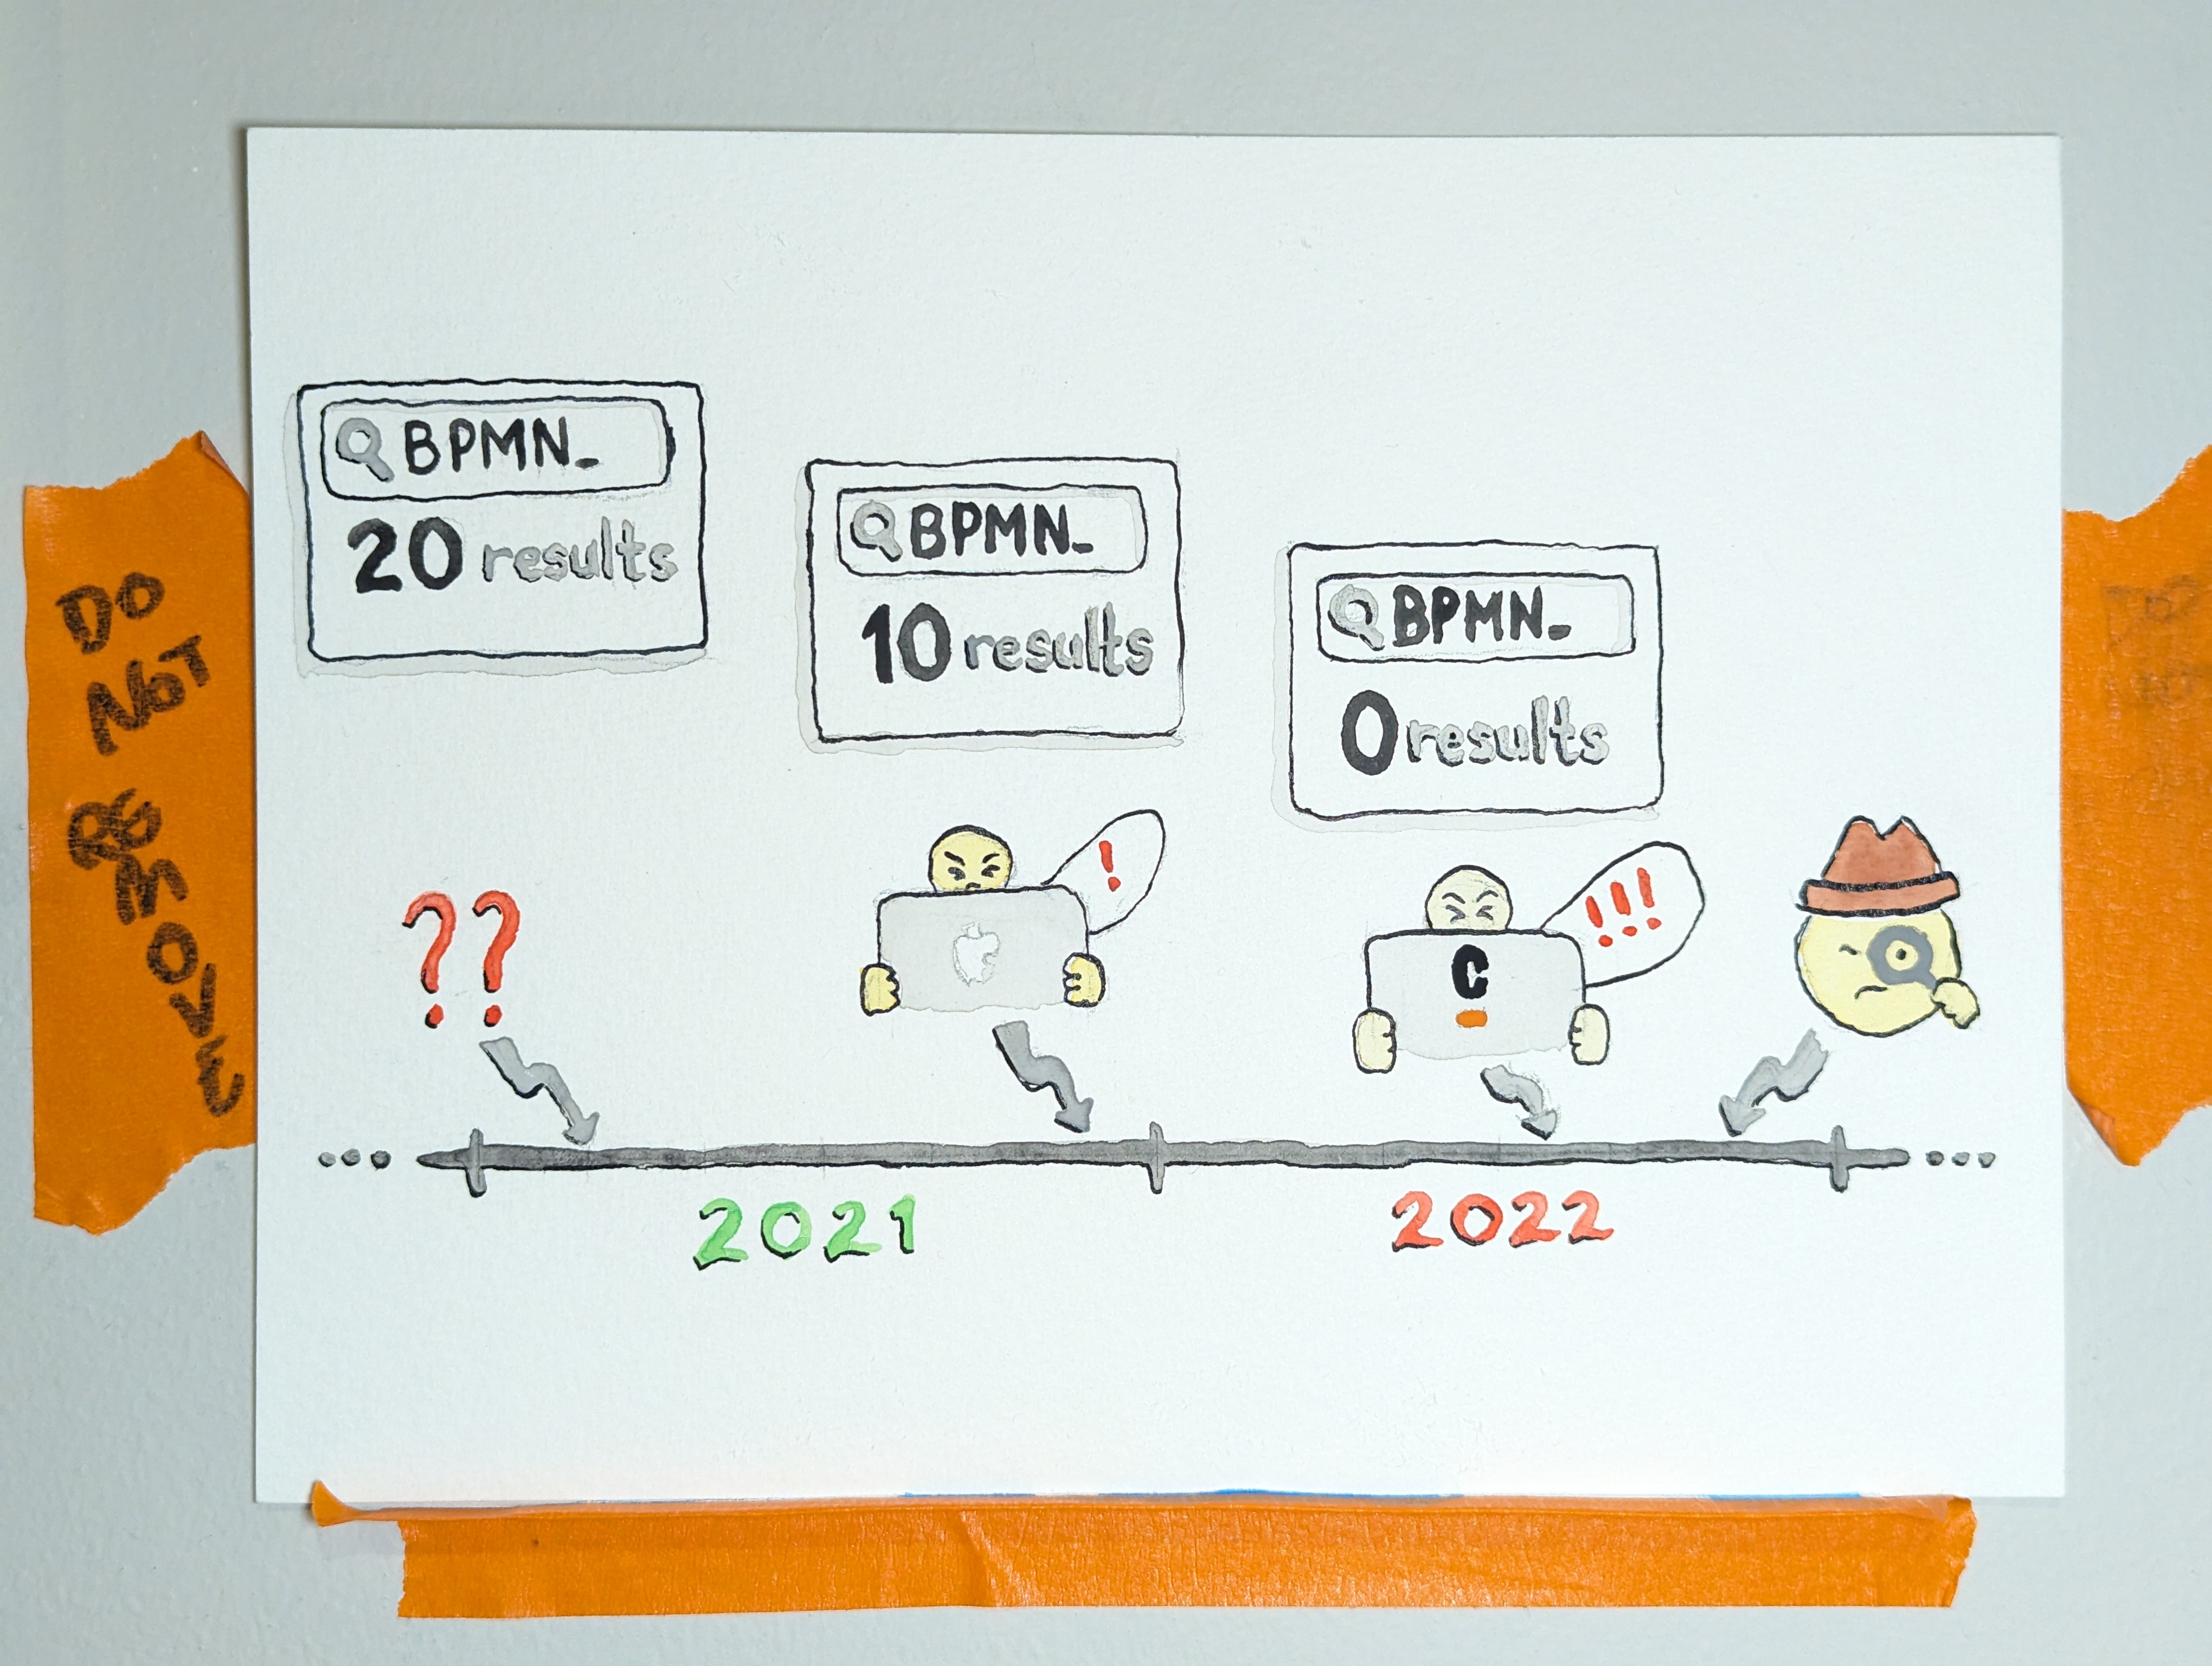 DO
NOT
REMOVE
BPMN_
20 results
BPMN_
10 results
BPMN_
0 results
??
!
C
!!!
2021
2022